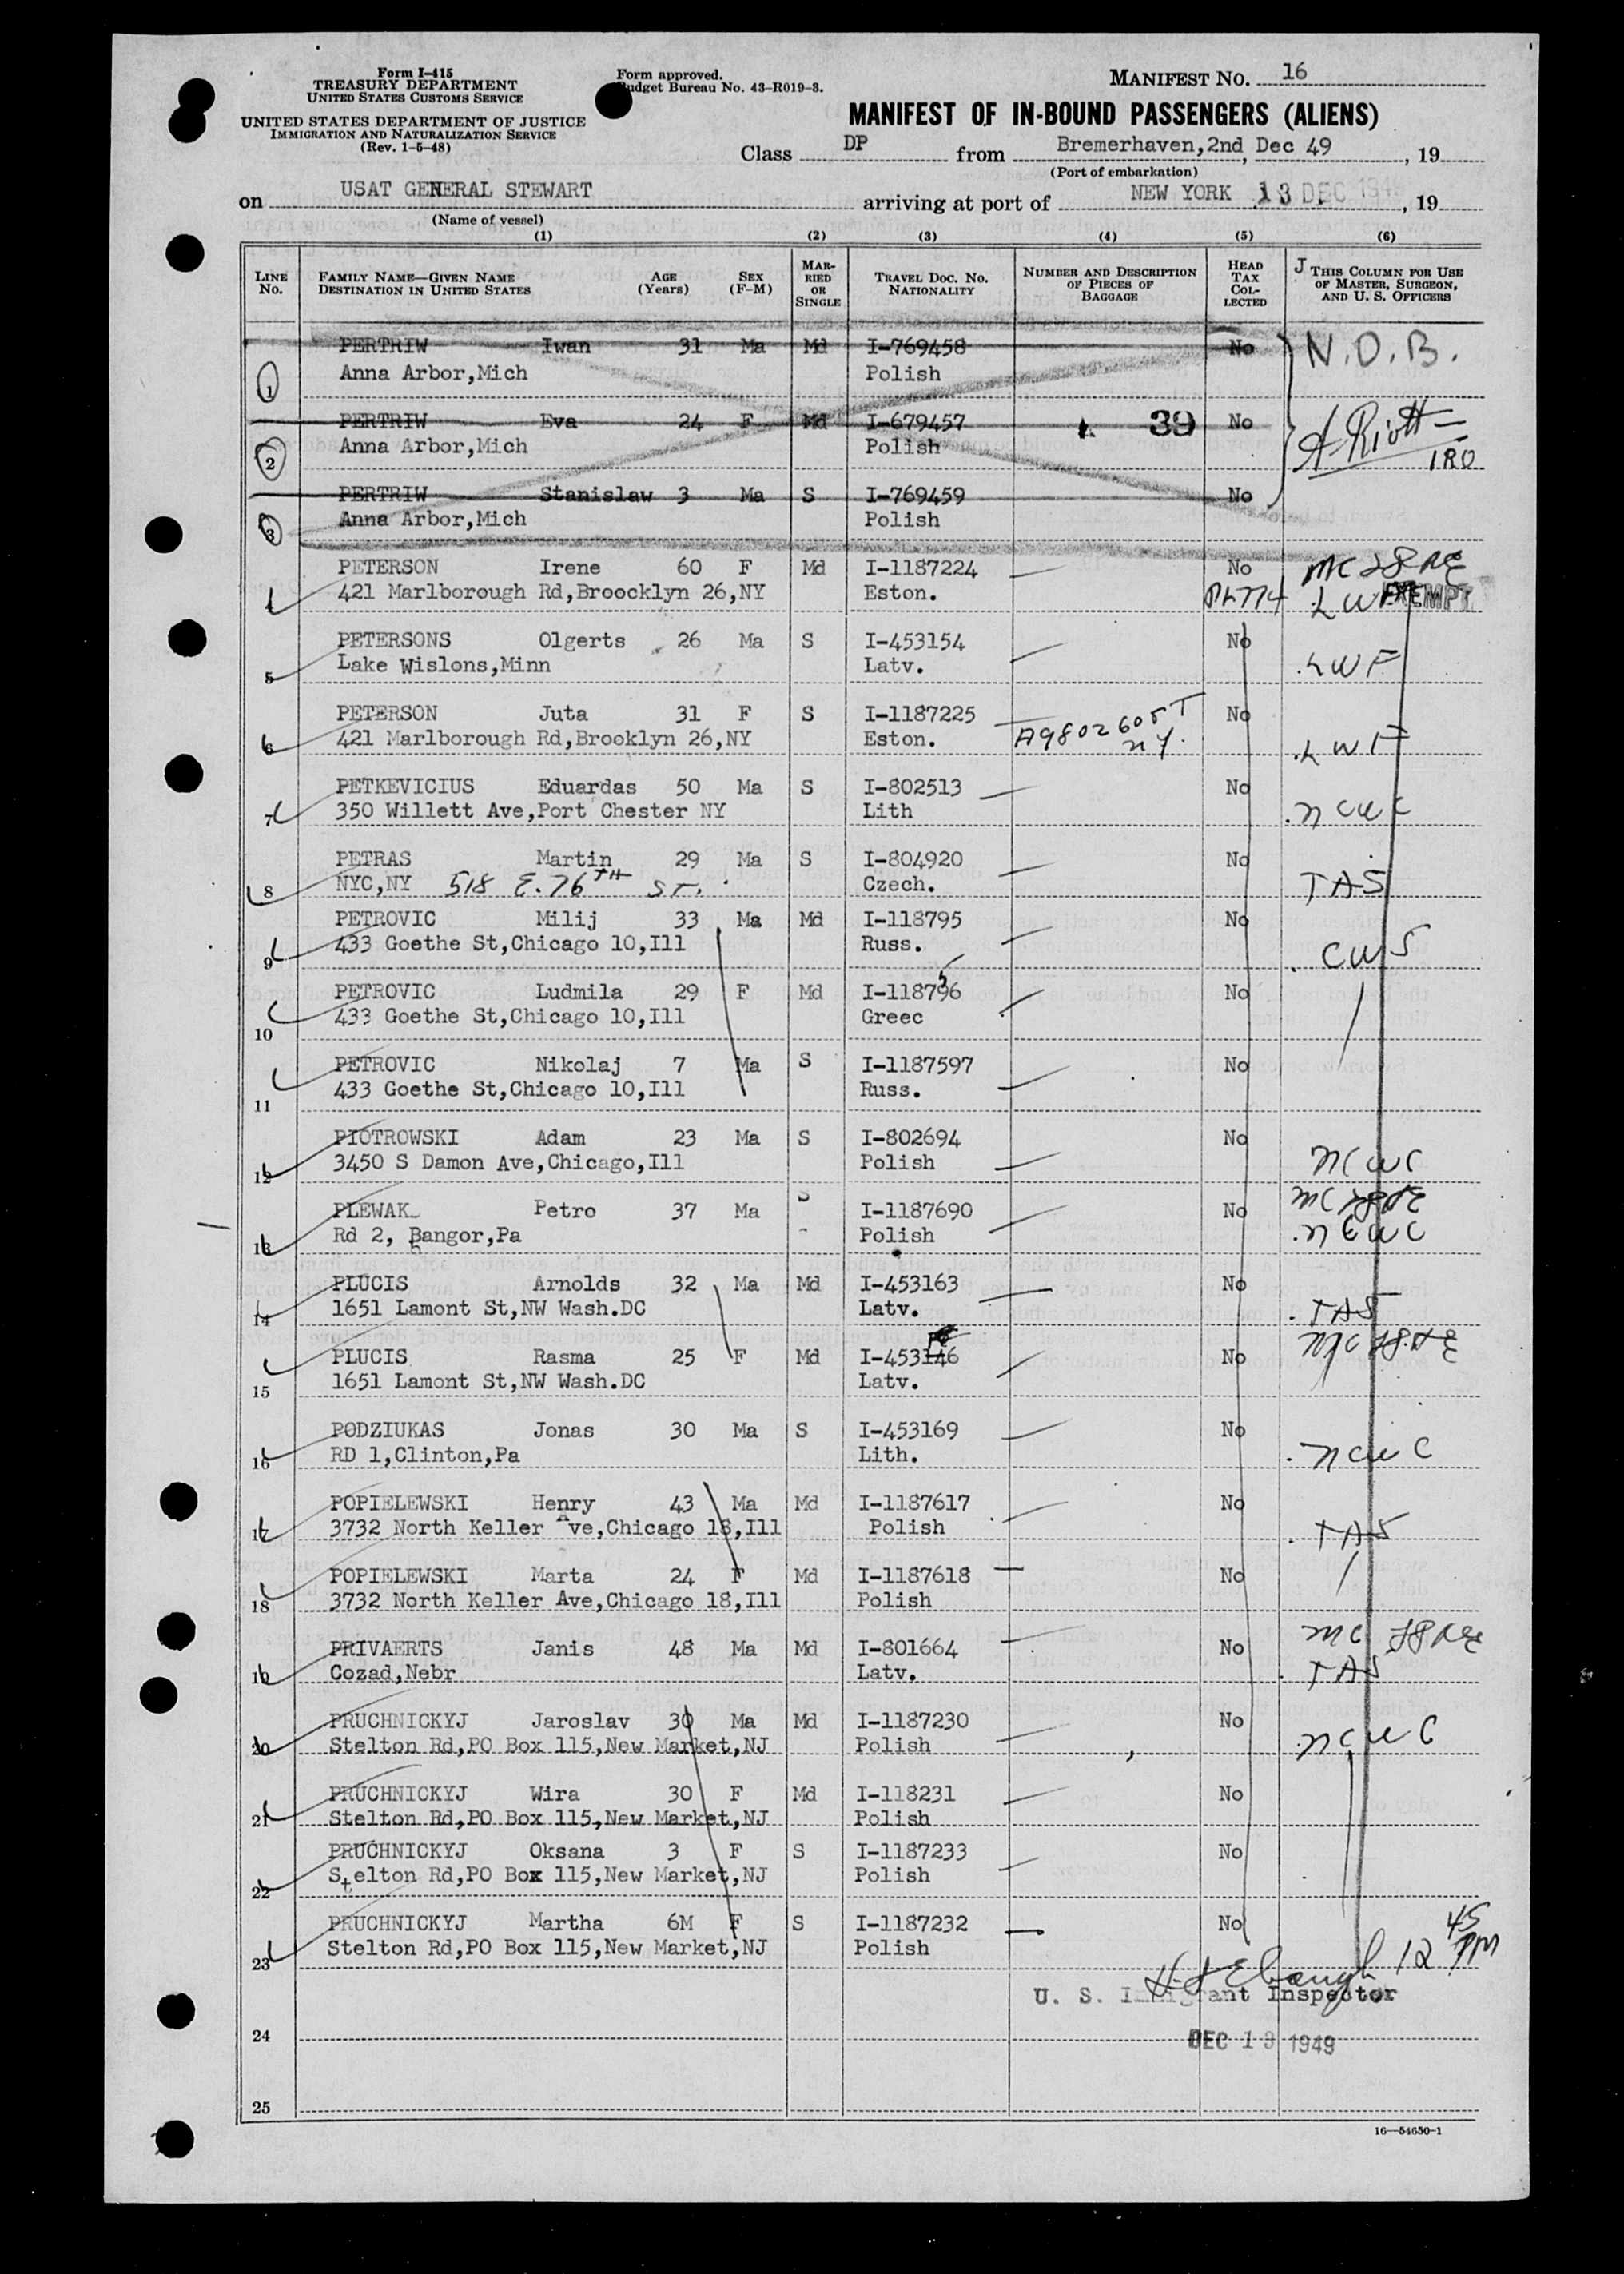 Form I-415
TREASURY DEPARTMENT
UNITED STATES CUSTOMS SERVICE
UNITED STATES DEPARTMENT OF JUSTICE
IMMIGRATION AND NATURALIZATION SERVICE
(Rev. 1-5-48)
Form approved.
Budget Bureau No. 43-R019-3.
MANIFEST NO. 16
MANIFEST OF IN-BOUND PASSENGERS (ALIENS)
Class DP from Bremerhaven,2nd, Dec 49, 19
(Port of embarkation)
on USAT GENERAL STEWART arriving at port of NEW YORK 13 DEC 1949, 19
(Name of vessel)
(1) (2) (3) (4) (5) (6)
LINE No. FAMILY NAME—GIVEN NAME DESTINATION IN UNITED STATES AGE (Years) SEX (F-M) MARRIED OR SINGLE TRAVEL DOC. NO. NATIONALITY NUMBER AND DESCRIPTION OF PIECES OF BAGGAGE HEAD TAX COLLECTED THIS COLUMN FOR USE OF MASTER, SURGEON, AND U. S. OFFICERS
PERTRIW Iwan 31 Ma Md I-769458 No N.O.B.
1 Anna Arbor,Mich Polish
PERTRIW Eva 24 F Md I-679457 39 No
2 Anna Arbor,Mich Polish IRO
PERTRIW Stanislaw 3 Ma S I-769459 No
3 Anna Arbor,Mich Polish
PETERSON Irene 60 F Md I-1187224 No
4 421 Marlborough Rd,Broocklyn 26,NY Eston. PL774 LWF EXEMPT
PETERSONS Olgerts 26 Ma S I-453154 No
5 Lake Wislons,Minn Latv. LWF
PETERSON Juta 31 F S I-1187225 A9802605T No
6 421 Marlborough Rd,Brooklyn 26,NY Eston. NY. LWF
PETKEVICIUS Eduardas 50 Ma S I-802513 No
7 350 Willett Ave,Port Chester NY Lith NCWC
PETRAS Martin 29 Ma S I-804920 No
8 NYC,NY 518 E. 76TH ST. Czech. TAS
PETROVIC Milij 33 Ma Md I-118795 No
9 433 Goethe St,Chicago 10,Ill Russ. CWS
PETROVIC Ludmila 29 F Md I-118796 5 No
10 433 Goethe St,Chicago 10,Ill Greec
PETROVIC Nikolaj 7 Ma S I-1187597 No
11 433 Goethe St,Chicago 10,Ill Russ.
PIOTROWSKI Adam 23 Ma S I-802694 No
12 3450 S Damon Ave,Chicago,Ill Polish NCWC
PLEWAK Petro 37 Ma S I-1187690 No
13 Rd 2, Bangor,Pa Polish NCWC
PLUCIS Arnolds 32 Ma Md I-453163 No
14 1651 Lamont St,NW Wash.DC Latv. TAS
PLUCIS Rasma 25 F Md I-453146 No
15 1651 Lamont St,NW Wash.DC Latv.
PODZIUKAS Jonas 30 Ma S I-453169 No
16 RD 1,Clinton,Pa Lith. NCWC
POPIELEWSKI Henry 43 Ma Md I-1187617 No
17 3732 North Keller Ave,Chicago 18,Ill Polish TAS
POPIELEWSKI Marta 24 F Md I-1187618 No
18 3732 North Keller Ave,Chicago 18,Ill Polish
PRIVAERTS Janis 48 Ma Md I-801664 No
19 Cozad,Nebr Latv. TAS
PRUCHNICKYJ Jaroslav 30 Ma Md I-1187230 No
20 Stelton Rd,PO Box 115,New Market,NJ Polish NCWC
PRUCHNICKYJ Wira 30 F Md I-118231 No
21 Stelton Rd,PO Box 115,New Market,NJ Polish
PRUCHNICKYJ Oksana 3 F S I-1187233 No
22 Stelton Rd,PO Box 115,New Market,NJ Polish
PRUCHNICKYJ Martha 6M F S I-1187232 No
23 Stelton Rd,PO Box 115,New Market,NJ Polish
12 45 PM
U. S. Immigrant Inspector
24
DEC 13 1949
25
16—54650-1